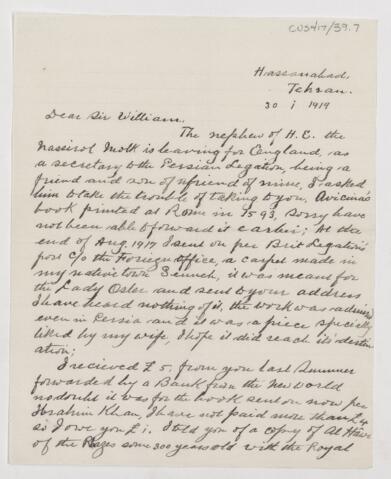 CUS417/39.7
Hassanabad,
Tehran.
30 i 1919
Dear Sir William.
The nephew of H.E. the
Nassirol Molk is leaving for England, as
a secretary to the Persian Legation, being a
friend and son of a friend of mine, I asked
him to take the trouble of taking to you. Avicina's
book printed at Rome in 1593, sorry have
not been able forward it earlier; At the
end of Aug 1917 I sent on per Brit Legation's
post c/o the Foriegn office, a carpet made in
my native town Senneh, it was meant for
the Lady Osler and sent to your address
I have heard nothing of it, the work was admired
even in Persia and it was a piece specially
liked by my wife, I hope it did reach its destin
ation;
I recieved £5, from you last Summer
forwarded by a Bank from the New World
no doubt it was for the book sent on now per
Ibrahim Khan, I have not paid more than £4
so I owe you £1. I told you of a copy of Al Hawi
of the Razes some 300 years old with the Royal